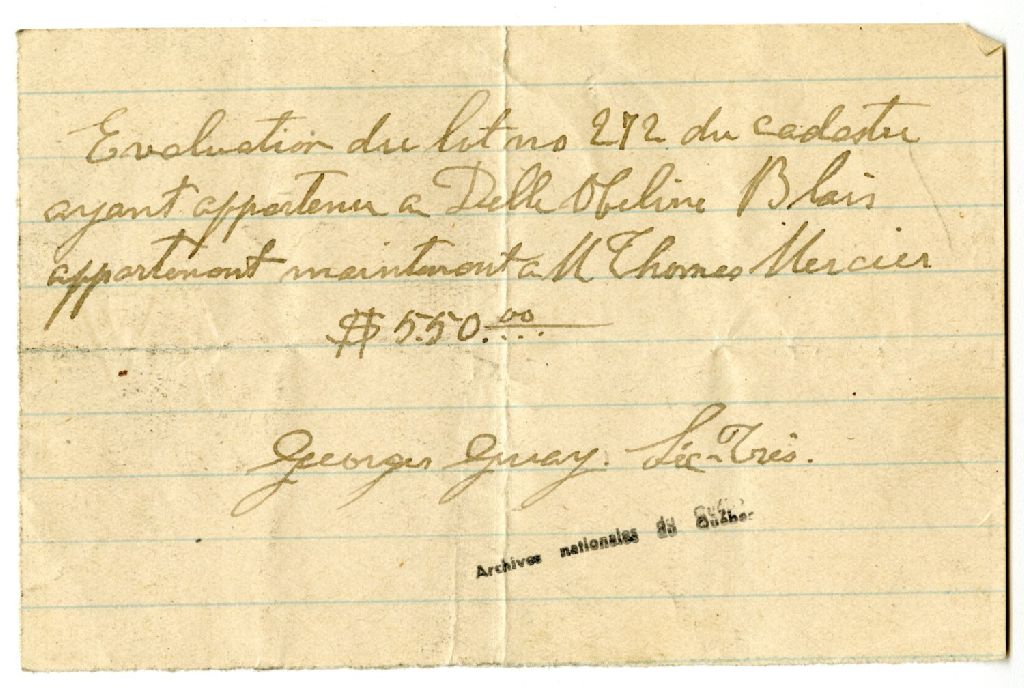 Evaluation du lot no 272 du cadastre
ayant appartenu a Delle Obeline Blais
appartenant maintenant a M Thomas Mercier
$ 550.00
Georges Guay. Séc-Trés.
Archives nationales du Québec